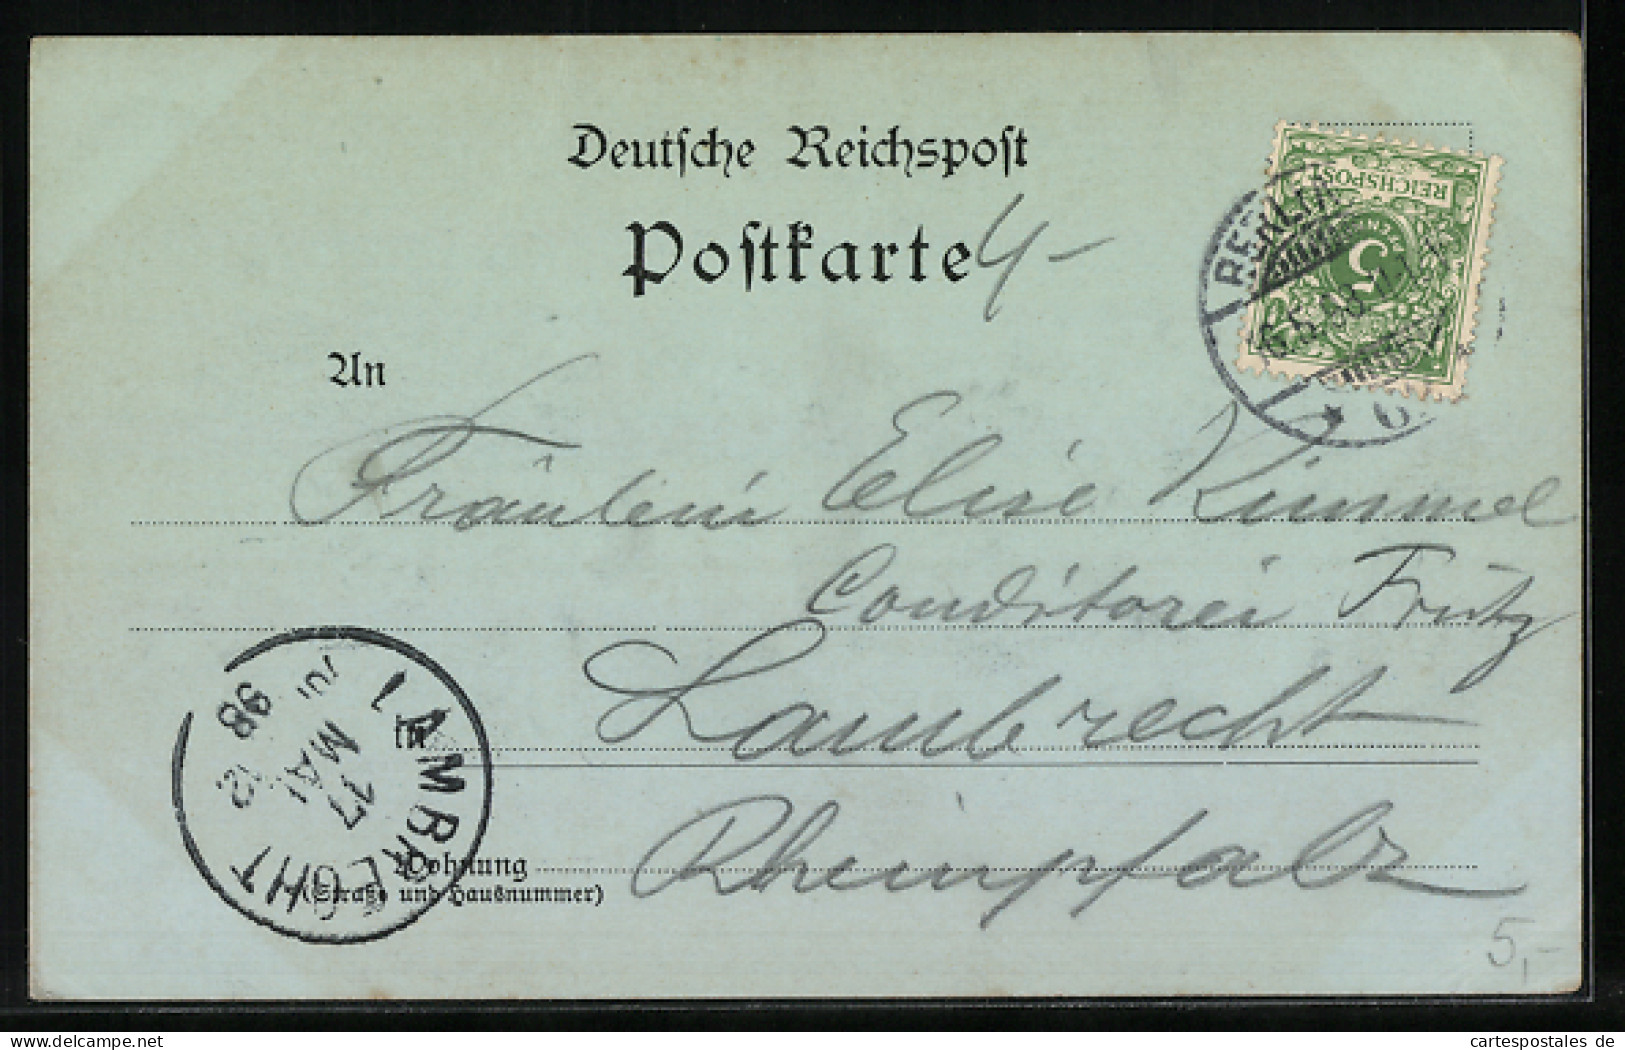 Deutsche Reichspost
Postkarte
4-
REICHSPOST
5
BERLIN
An
Fräulein Elise Kimmel
Conditorei Fritz
in Lambrecht
LAMBRECHT
17
MAI
12
98
Wohnung
(Straße und Hausnummer)
Rheinpfalz
5,-
cartespostales de